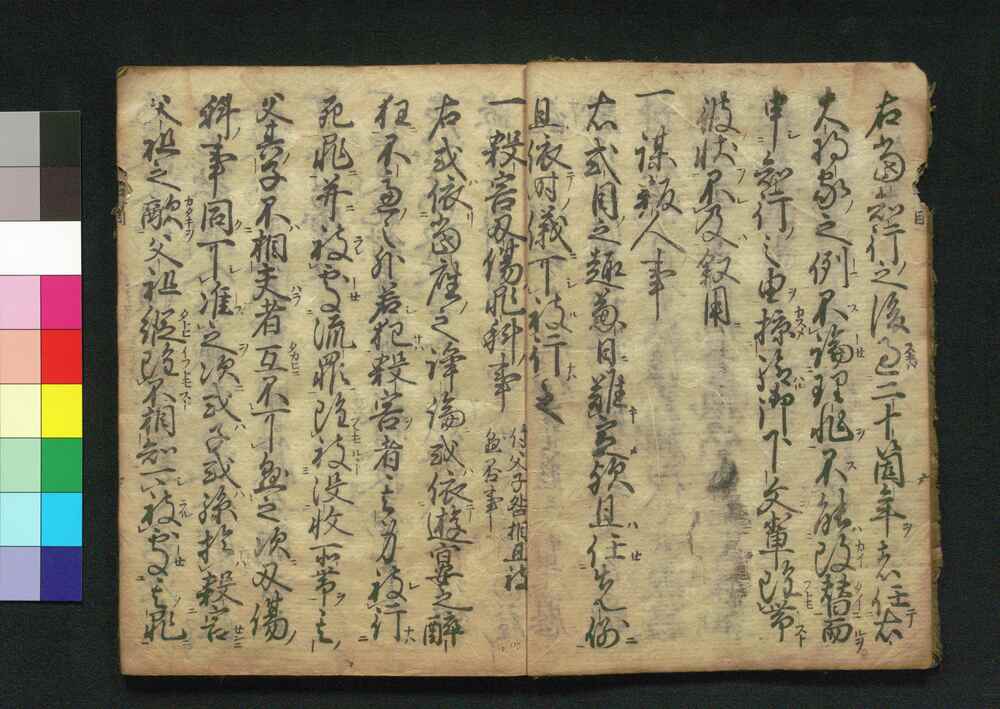 右当知行之後過二十箇年者任右
大将家之例不論理非不能改替而
申知行之由掠給御下文輩雖帯
彼状不及叙用
一 謀叛人事
右式目之趣兼日難定歟且任先例
且依時儀可被行之
一 殺害刃傷罪科事 付父子咎相互被懸否事
右或依当座之諍論或依遊宴之酔
狂不慮之外若犯殺害者其身被行
死罪并被処流罪雖被没収所帯其
父其子不相交者互不可懸之次刃傷
科事同可准之次或子或孫於殺害
父祖之敵父祖縦雖不相知可被処其罪